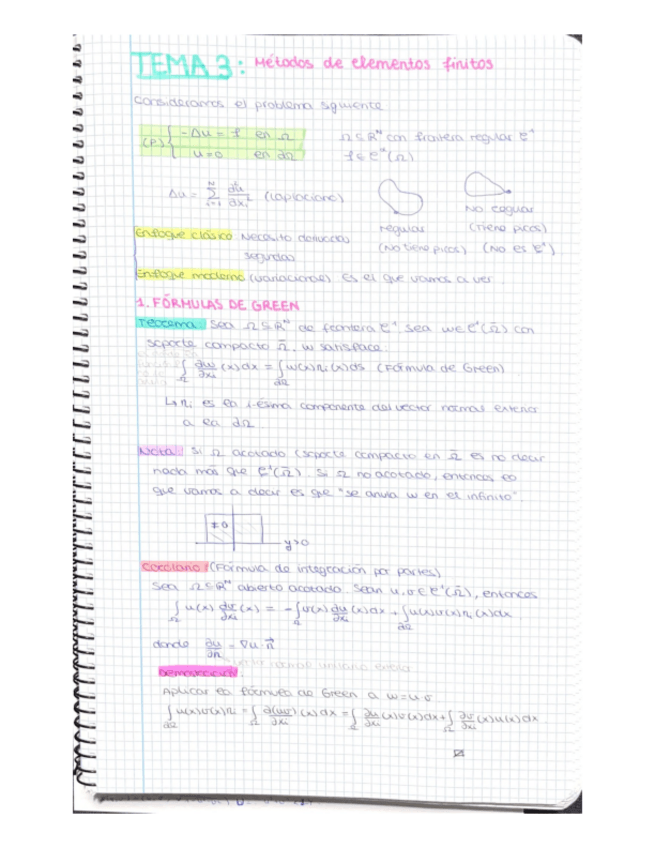 TEMA 3: Métodos de elementos finitos
Consideramos el problema siguiente
(P) { -Δu = f en Ω    Ω ⊆ ℝᴺ con frontera regular C¹
u=0 en ∂Ω    f ∈ C⁰(Ω)
Δu = Σ_{i=1}^{N} ∂²u/∂xᵢ² (laplaciano)
regular (No tiene picos)
No regular (Tiene picos) (No es C¹)
Enfoque clásico: Necesito derivadas
segundas
Enfoque moderno (variacional) Es el que vamos a ver.
1. FÓRMULAS DE GREEN
Teorema: Sea Ω ⊆ ℝᴺ de frontera C¹. Sea w ∈ C¹(Ω̄) con
soporte compacto Ω̄, w satisface.
∫_Ω ∂w/∂xᵢ (x)dx = ∫_∂Ω w(x)nᵢ(x)ds (Fórmula de Green)
↳ nᵢ es la i-ésima componente del vector normal exterior
a la ∂Ω
Nota: Si Ω acotado (soporte compacto en Ω̄ es no decir
nada más que C¹(Ω̄). Si Ω no acotado, entonces lo
que vamos a decir es que "se anula w en el infinito".
≠0
y>0
Corolario: (Fórmula de integración por partes)
Sea Ω ⊆ ℝᴺ abierto acotado. Sean u,v ∈ C¹(Ω̄), entonces
∫_Ω u(x) ∂v/∂xᵢ (x) = -∫_Ω v(x) ∂u/∂xᵢ (x)dx + ∫_∂Ω u(x)v(x)nᵢ(x)dx
donde ∂u/∂n = ∇u·n⃗
Demostración:
Aplicar la fórmula de Green a w=u·v
∫_∂Ω u(x)v(x)n = ∫_Ω ∂(uv)/∂xᵢ (x)dx = ∫_Ω ∂u/∂xᵢ (x)v(x)dx + ∫_Ω ∂v/∂xᵢ (x)u(x)dx